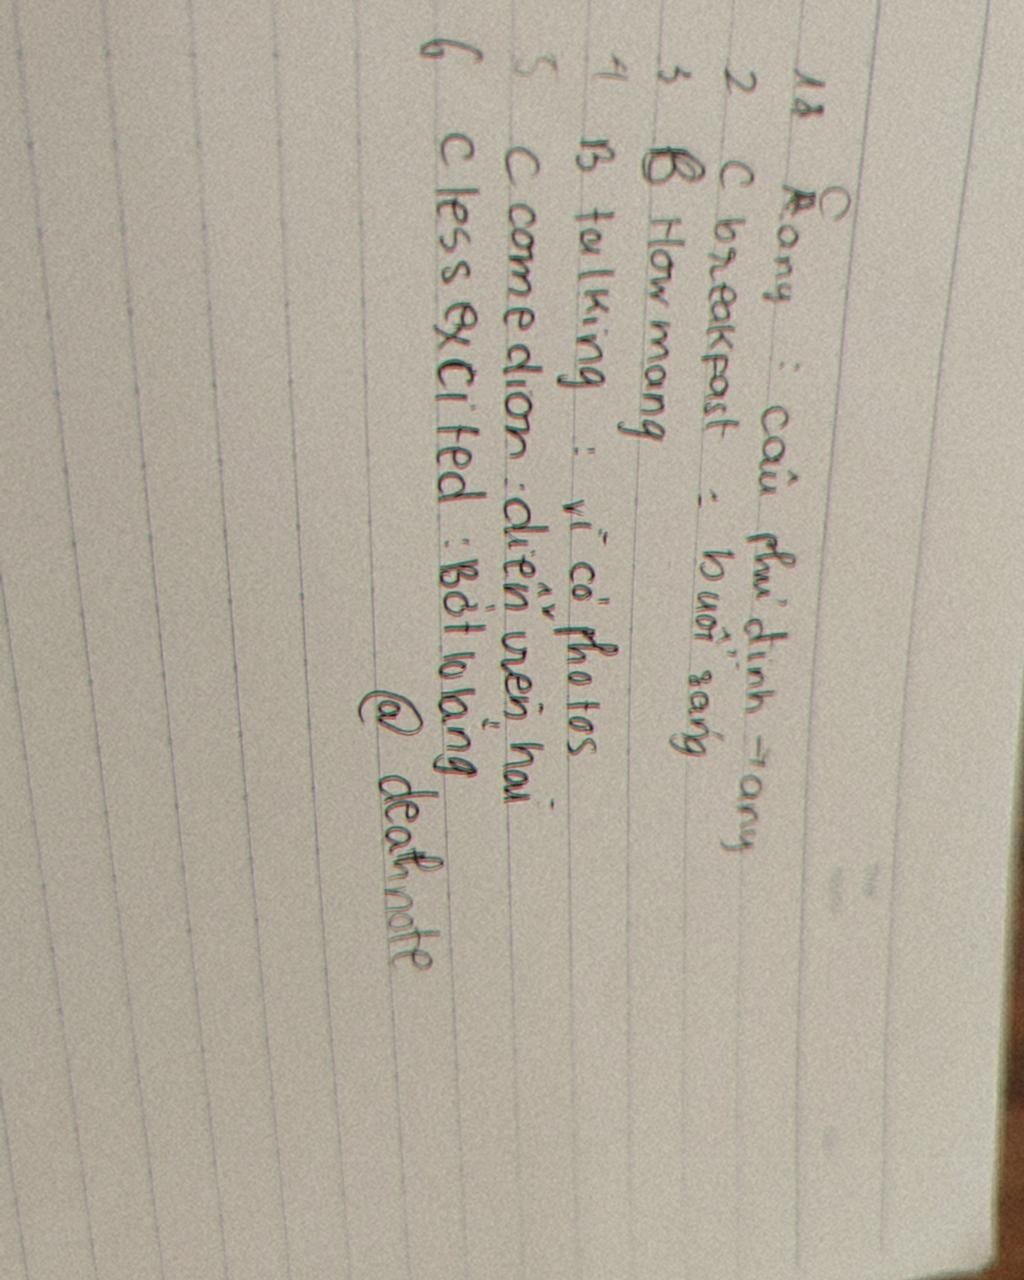 1 C any : câu phủ định → any
2 C breakfast : buổi sáng
3 B How mang
4 B talking : vì có photos
5 C comedion : diễn viên hài
6 C less excited : Bớt lo lắng
@ deathnote